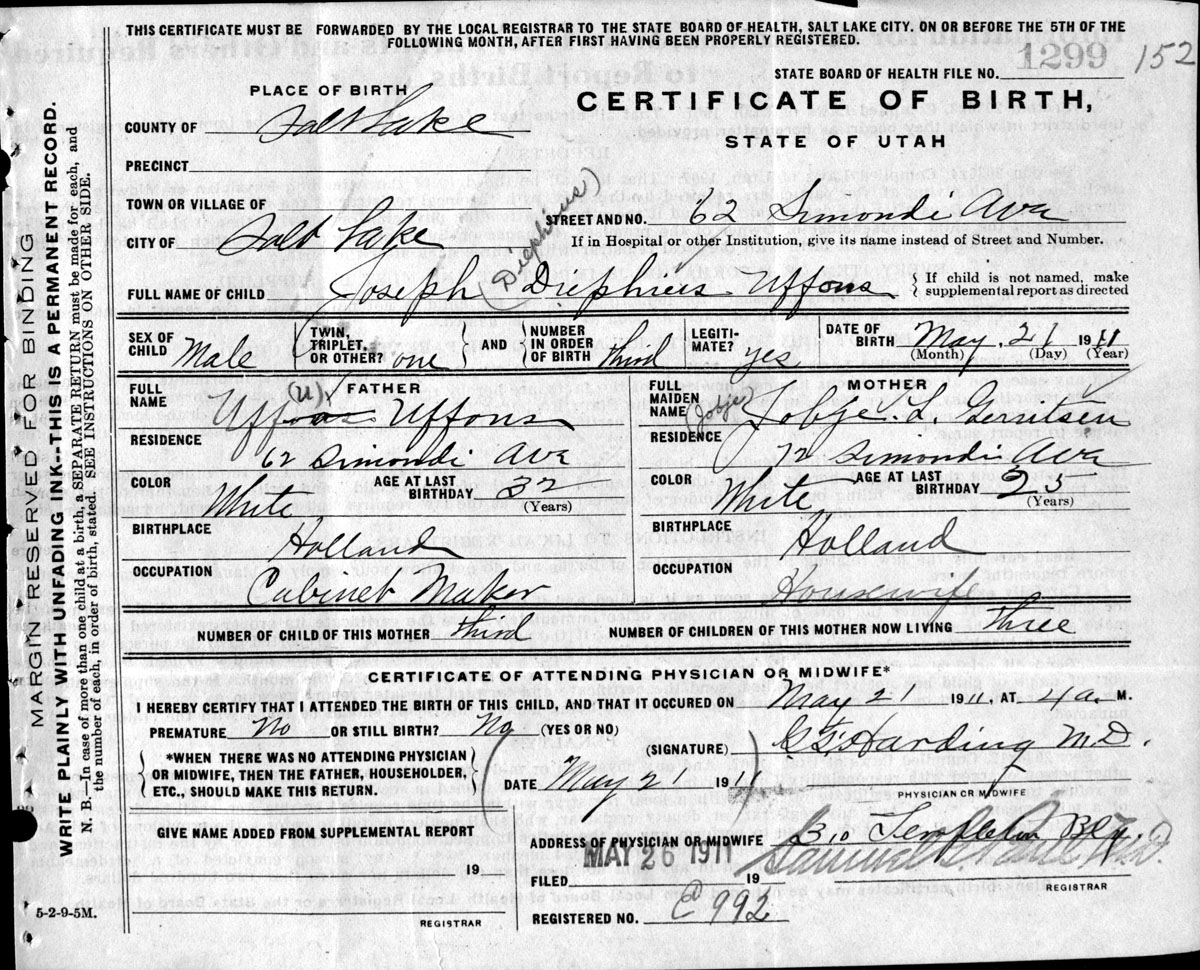 THIS CERTIFICATE MUST BE FORWARDED BY THE LOCAL REGISTRAR TO THE STATE BOARD OF HEALTH, SALT LAKE CITY. ON OR BEFORE THE 5TH OF THE
FOLLOWING MONTH, AFTER FIRST HAVING BEEN PROPERLY REGISTERED.
1299 152
STATE BOARD OF HEALTH FILE NO.
MARGIN RESERVED FOR BINDING
WRITE PLAINLY WITH UNFADING INK--THIS IS A PERMANENT RECORD.
N. B.—In case of more than one child at a birth, a SEPARATE RETURN must be made for each, and
the number of each, in order of birth, stated. SEE INSTRUCTIONS ON OTHER SIDE.
PLACE OF BIRTH
CERTIFICATE OF BIRTH,
STATE OF UTAH
COUNTY OF Salt Lake
PRECINCT
TOWN OR VILLAGE OF
STREET AND NO. 62 Simondi Ave
CITY OF Salt Lake
If in Hospital or other Institution, give its name instead of Street and Number.
(Diephuis)
FULL NAME OF CHILD Joseph Diephuis Uffens
If child is not named, make
supplemental report as directed
SEX OF CHILD Male
TWIN, TRIPLET, OR OTHER? one
AND
NUMBER IN ORDER OF BIRTH third
LEGITI- MATE? yes
DATE OF BIRTH May 21 1911
(Month) (Day) (Year)
FATHER
MOTHER
FULL NAME (U) Uffens
FULL MAIDEN NAME (Jobje) Jobje L. Gerritsen
RESIDENCE 62 Simondi Ave
RESIDENCE 72 Simondi Ave
COLOR White AGE AT LAST BIRTHDAY 32
(Years)
COLOR White AGE AT LAST BIRTHDAY 25
(Years)
BIRTHPLACE Holland
BIRTHPLACE Holland
OCCUPATION Cabinet Maker
OCCUPATION Housewife
NUMBER OF CHILD OF THIS MOTHER third
NUMBER OF CHILDREN OF THIS MOTHER NOW LIVING three
CERTIFICATE OF ATTENDING PHYSICIAN OR MIDWIFE*
I HEREBY CERTIFY THAT I ATTENDED THE BIRTH OF THIS CHILD, AND THAT IT OCCURED ON May 21 1911, AT 4 a. M.
PREMATURE No OR STILL BIRTH? No (YES OR NO)
*WHEN THERE WAS NO ATTENDING PHYSICIAN
OR MIDWIFE, THEN THE FATHER, HOUSEHOLDER,
ETC., SHOULD MAKE THIS RETURN.
(SIGNATURE) Harding M.D.
DATE May 21 191
PHYSICIAN OR MIDWIFE
GIVE NAME ADDED FROM SUPPLEMENTAL REPORT
ADDRESS OF PHYSICIAN OR MIDWIFE 310 Templeton Bld.
19
MAY 26 1911
FILED 19
REGISTRAR
REGISTERED NO. 992
5-2-9-5M.
REGISTRAR